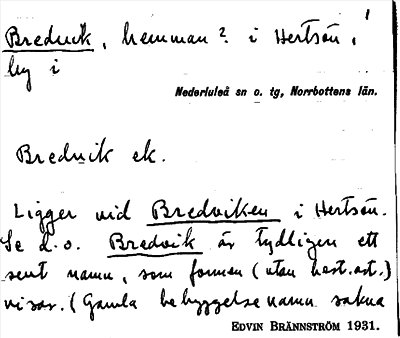 Bredvik, hemman? i Hertsön,
by i
Nederluleå sn o. tg, Norrbottens län.
Bredvik ek.
Ligger vid Bredviken i Hertsön.
Se d. o. Bredvik är tydligen ett
sent namn, som formen (utan best. art.)
visar. (Gamla bebyggelsenamn sakna
EDVIN BRÄNNSTRÖM 1931.